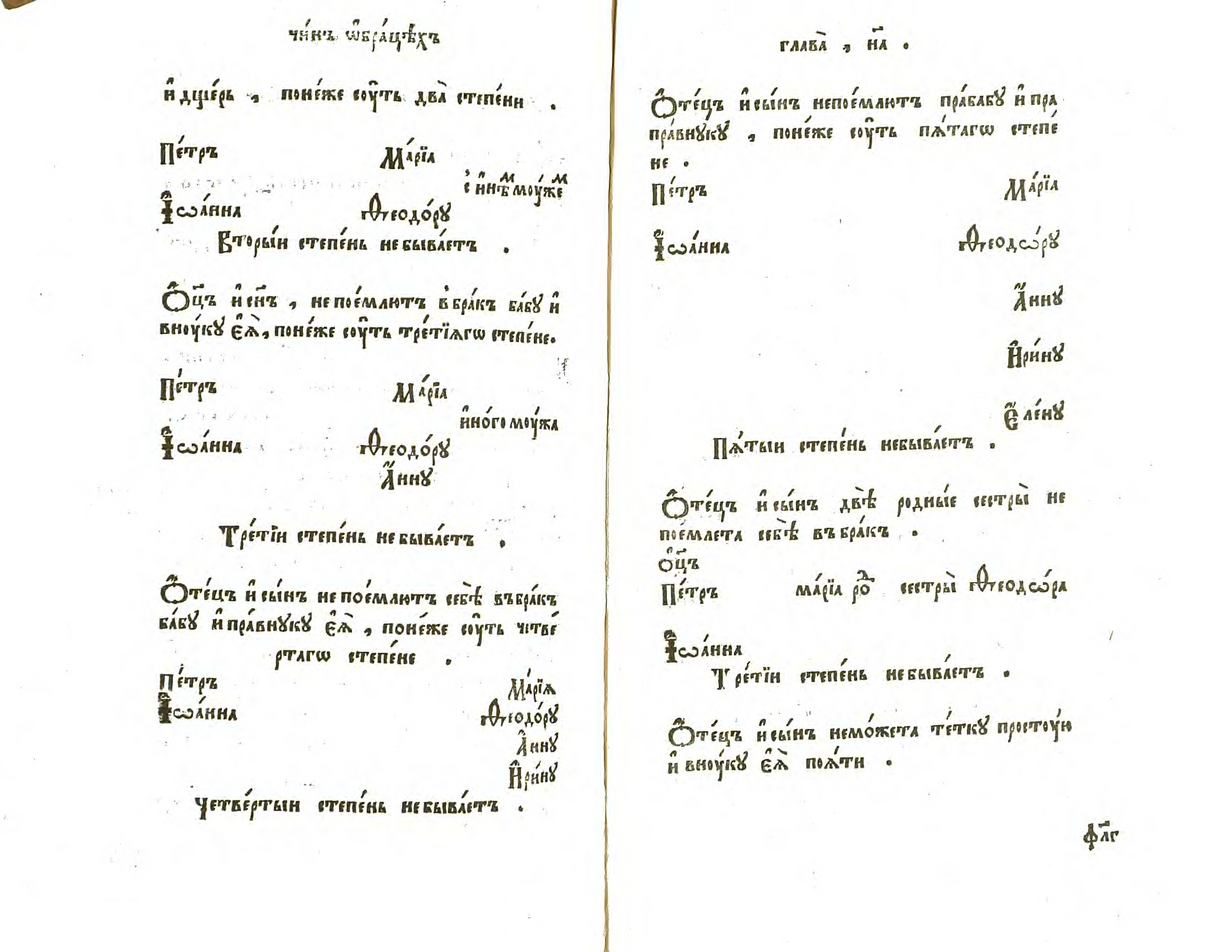 чи́нъ ѡ҆бра́цѣхъ
и҆ дще́рь , поне́же сꙋ́ть два̀ степе́ни .
Пе́тръ Ма́рїа
с̾ и҆нѣ́ⷨ мꙋ́жеⷨ
І҆ѡа́нна Ѳ҆еодо́рꙋ
Вторы́и степе́нь не быва́етъ .
Ѻ҆ц҃ъ и҆ сн҃ъ , не пое́млютъ в̾ бра́къ ба́бꙋ и҆
внꙋ́кꙋ є҆ѧ̀ , поне́же сꙋ́ть тре́тїѧгѡ степе́не.
Пе́тръ Ма́рїа
и҆но́го мꙋ́жа
І҆ѡа́нна Ѳ҆еодо́рꙋ
А҆́ннꙋ
Тре́тїи степе́нь не быва́етъ .
Ѻ҆те́цъ и҆ сы́нъ не пое́млютъ себѣ̀ въ бра́къ
ба́бꙋ и҆ пра́внꙋкꙋ є҆ѧ̀ , поне́же сꙋ́ть четве́
ртагѡ степе́не .
Пе́тръ Ма́рїѧ
І҆ѡа́нна Ѳ҆еодо́рꙋ
А҆́ннꙋ
И҆ри́нꙋ
Четве́ртыи степе́нь не быва́етъ .
глава̀ , н҃а .
Ѻ҆те́цъ и҆ сы́нъ не пое́млютъ пра́бабꙋ и҆ пра
пра́внꙋкꙋ , поне́же сꙋ́ть пѧ́тагѡ степе́
не .
Пе́тръ Ма́рїа
І҆ѡа́нна Ѳ҆еодѡ́рꙋ
А҆́ннꙋ
И҆ри́нꙋ
Є҆ле́нꙋ
Пѧ́тыи степе́нь не быва́етъ .
Ѻ҆те́цъ и҆ сы́нъ двѣ̀ родны́е сестры̀ не
пое́млета себѣ̀ въ бра́къ .
ѻ҆ц҃ъ
Пе́тръ ма́рїа роⷣ сестры̀ Ѳ҆еодѡ́ра
І҆ѡа́нна
Тре́тїи степе́нь не быва́етъ .
Ѻ҆те́цъ и҆ сы́нъ не мо́жета те́ткꙋ простꙋ́ю
и҆ внꙋ́кꙋ є҆ѧ̀ поѧ́ти .
ф҃лг